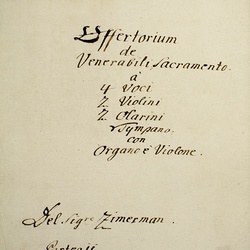 Offertorium
de
Venerabili Sacramento.
à
4 Voci
2 Violini
2 Clarini
Tympano.
con
Organo è Violone.
Del Sigre Zimerman.